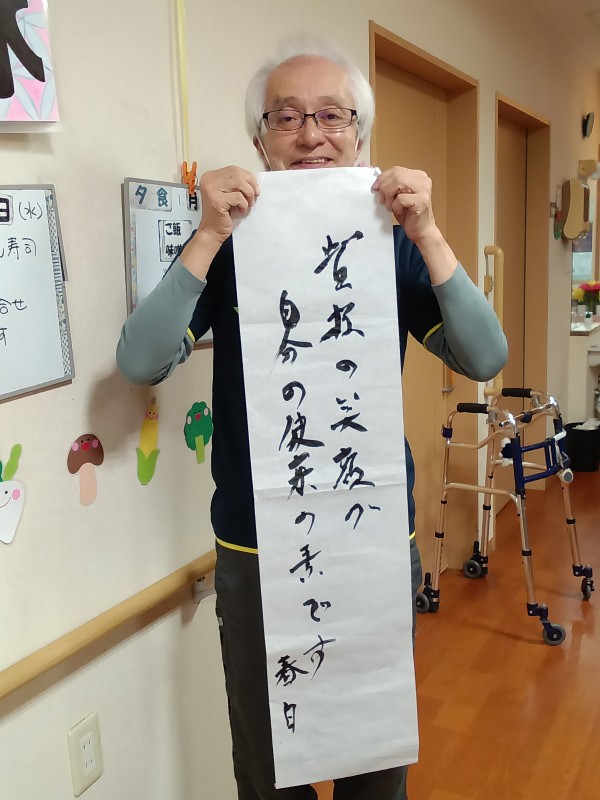 皆様の笑顔が
自分の健康の素です
春日
夕食
ご飯
月
日(水)
寿司
合せ
す